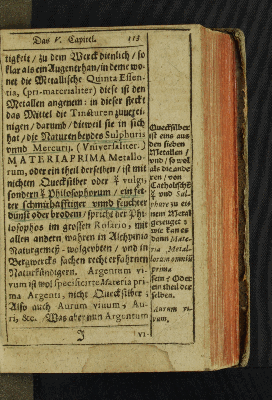 Das V. Capitel. 113
tigkeit / zu dem Werck dienlich / so
klar als ein Augenerhan / in deme wo-
net die Metallische Quinta Essen-
tia, (pri-materialiter) diese ist den
Metallen angenem: in dieser steckt
das Mittel die Tincturen zuverei-
nigen / darumb / dieweil sie in sich
hat / die Naturen beydes Sulphuris
vnnd Mercurii. (Vniversaliter.)
MATERIA PRIMA Metallo-
rum, oder ein theil derselben / ist mit
nichten Quecksilber oder ☿ vulgi,
sondern ☿ Philosophorum / ein fet-
ter schmutzhafftiger vnnd feuchter
dunst oder brodem / spricht der Phi-
losophos im grossen Rosario / mit
allen andern wahren in Alchymia
Naturgemeß-wolgeübten / vnd in
Bergwercks sachen recht erfahrnen
Naturkündigern. Argentum vi-
vum ist wol specificirte Materia pri-
ma Argenti, nicht Quecksilber;
Also auch Aurum vivum, Au-
ri, &c. Was aber nun Argentum
J vi-
Quecksilber
ist eins aus
den sieben
Metallen /
vnd / so wol
als die ande-
ren / von
Catholische
☿ vnd Sul-
phure zu ei-
nem Metall
gezeuget :
wie kan es
dann Mate-
ria Metal-
lorum omniũ
prima
sein? Oder
ein theil der-
selben.
Aurum vi-
vum.